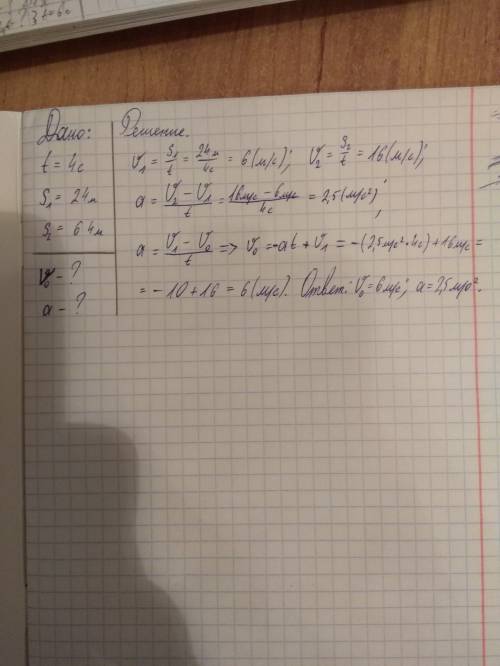 Дано:
t = 4с
S₁ = 24м
S₂ = 64м
V₀ - ?
a - ?
Решение.
V₁ = S₁/t = 24м/4с = 6 (м/с); V₂ = S₂/t = 16 (м/с);
a = (V₂ - V₁)/t = (16м/с - 6м/с)/4с = 2,5 (м/с²);
a = (V₁ - V₀)/t => V₀ = -at + V₁ = -(2,5м/с² · 4с) + 16м/с =
= - 10 + 16 = 6 (м/с). Ответ: V₀ = 6м/с; a = 2,5м/с².